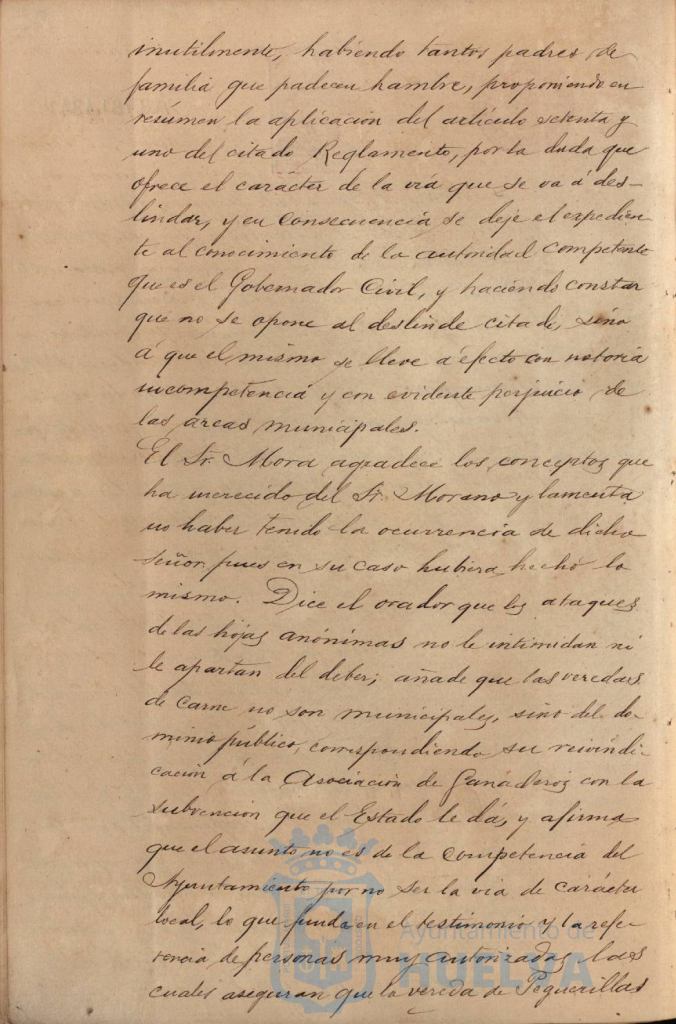 inutilmente, habiendo tantos padres de
familia que padecen hambre, proponiendo en
resúmen la aplicacion del artículo setenta y
uno del citado Reglamento, por la duda que
ofrece el carácter de la via que se va á des-
lindar, y en consecuencia se deje el expedien-
te al conocimiento de la autoridad competente
que es el Gobernador Civil, y haciendo constar
que no se opone al deslinde citado, sino
á que el mismo se lleve á efecto con notoria
incompetencia y con evidente perjuicio de
las arcas municipales.
El Sr. Mora agradece los conceptos que
ha merecido del Sr. Morano y lamenta
no haber tenido la ocurrencia de dicho
señor pues en su caso hubiera hecho lo
mismo. Dice el orador que los ataques
de las hojas anónimas no le intimidan ni
le apartan del deber; añade que las veredas
de carne no son municipales, sino del do-
minio público, correspondiendo su reivindi-
cación á la Asociación de Ganaderos con la
subvencion que el Estado le dá, y afirma
que el asunto no es de la competencia del
Ayuntamiento por no ser la via de carácter
local, lo que funda en el testimonio y la refe-
rencia de personas muy autorizadas las
cuales aseguran que la vereda de Peguerillas
Ayuntamiento de
HUELVA